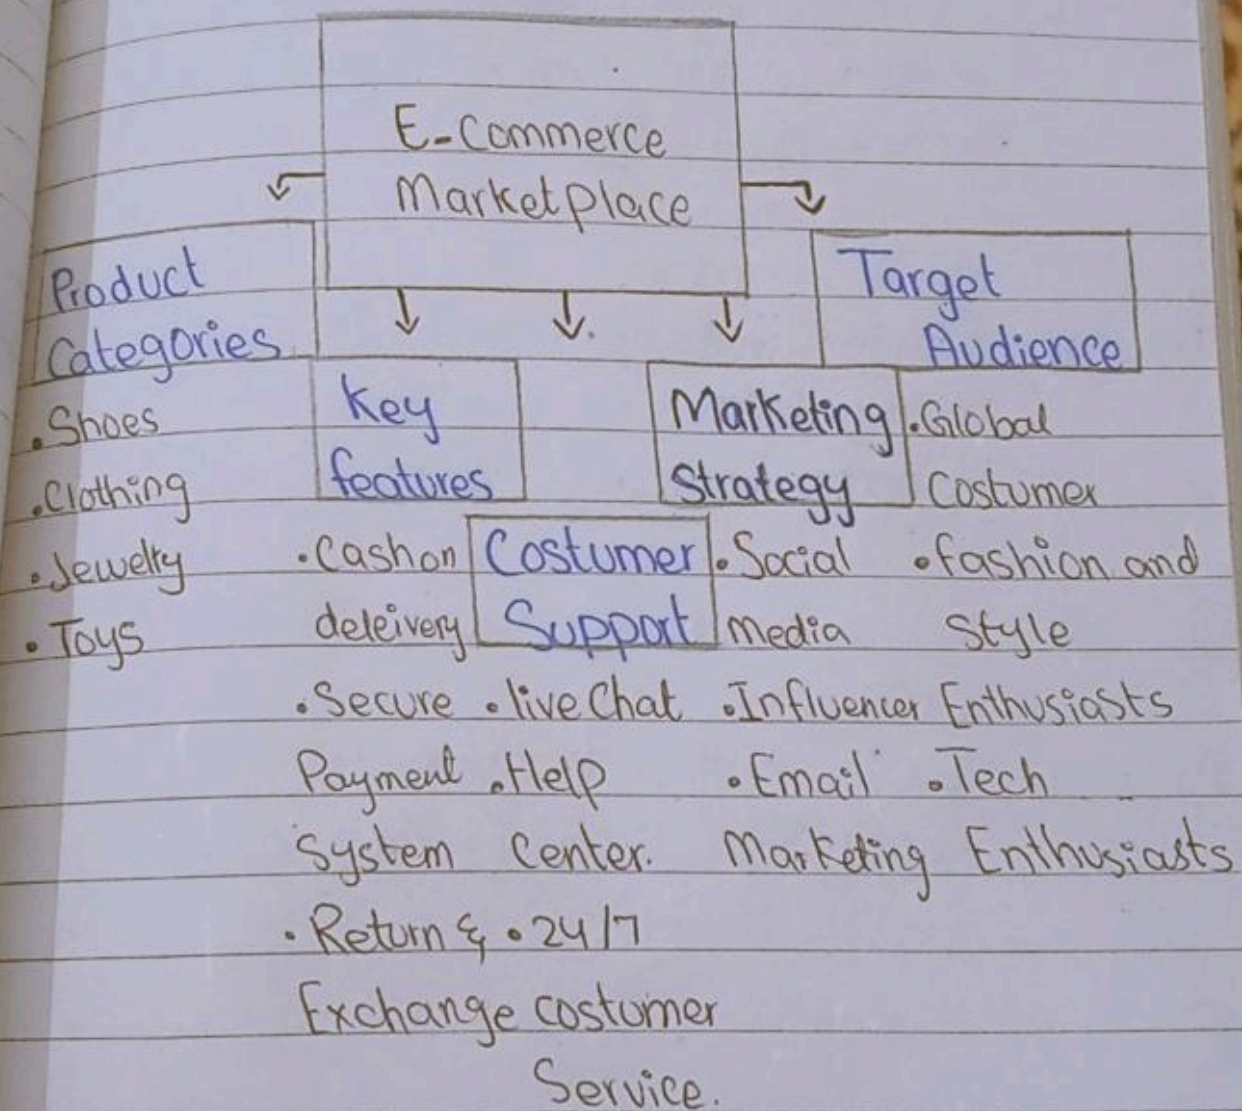 E-Commerce
Marketplace
Product
Categories
.Shoes
.Clothing
.Jewelry
.Toys
Key
features
.Cash on
deleivery
.Secure
Payment
System
.Return &
Exchange
Costumer
Support
.live Chat
.Help
Center.
.24/7
costumer
Service.
Marketing
Strategy
.Social
Media
.Influencer
.Email
Marketing
Target
Audience
.Global
Costumer
.fashion and
Style
Enthusiasts
.Tech
Enthusiasts